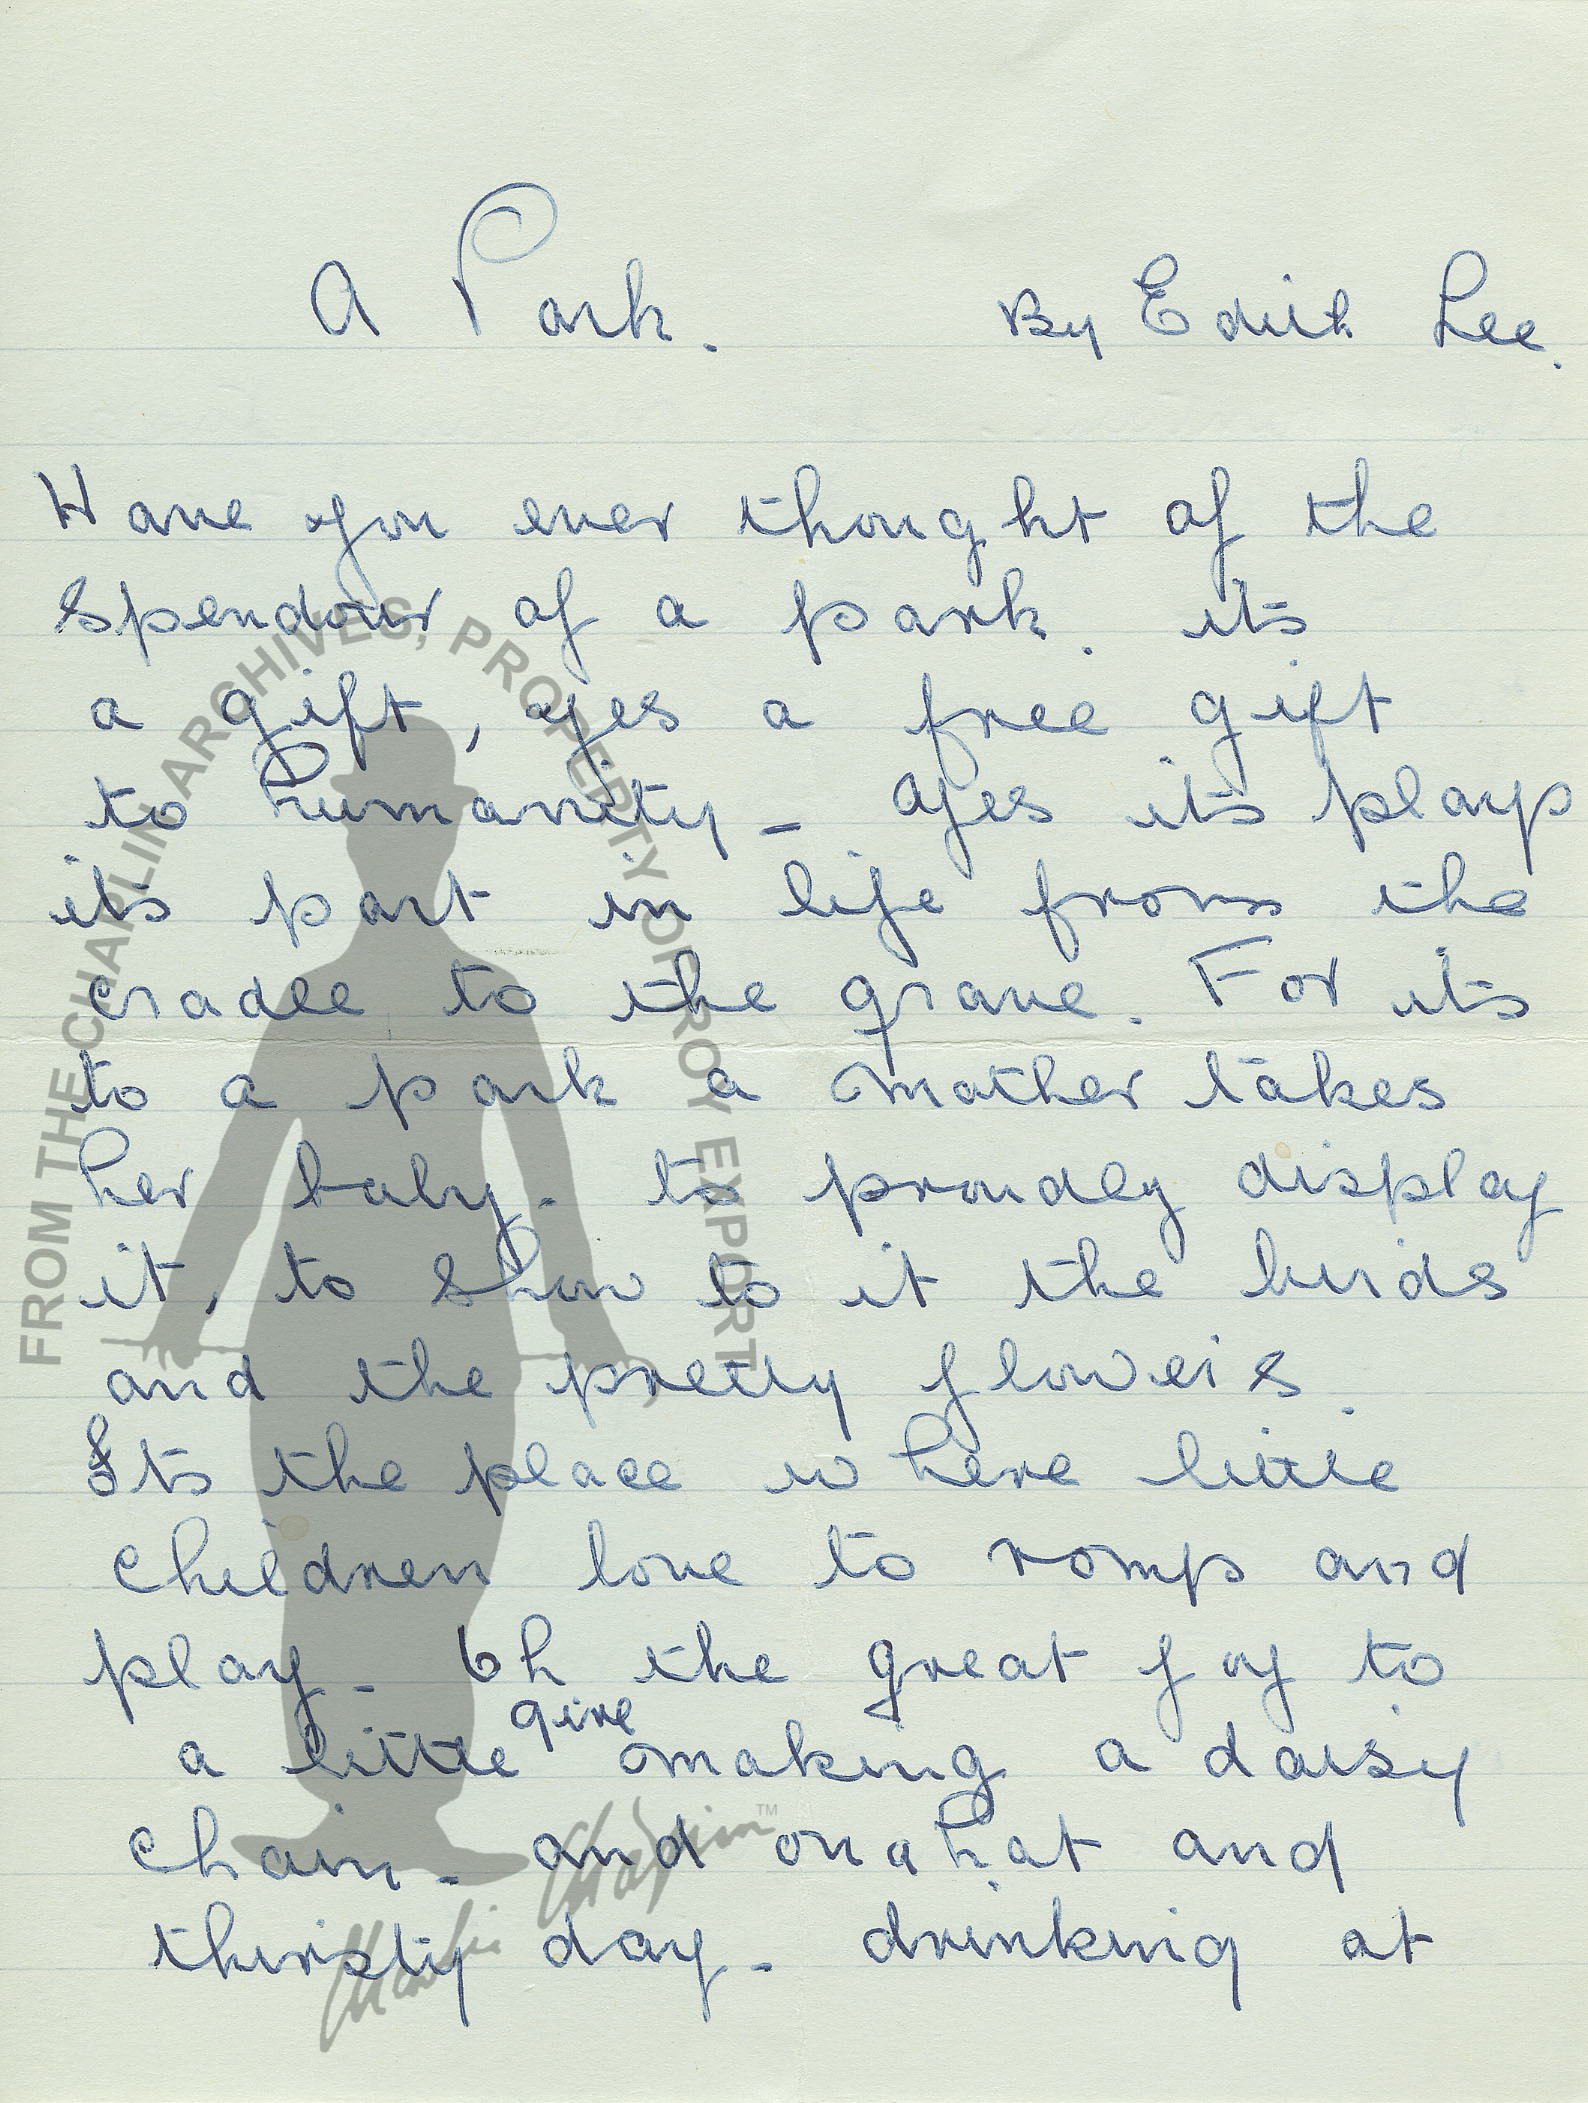 A Park. By Edith Lee.
Have you ever thought of the
Spendour of a park. its
a gift, yes a free gift
to humanity - yes its plays
its part in life from the
cradle to the grave. For its
to a park a mother takes
her baby. to proudly display
it, to show to it the birds
and the pretty flowers.
Its the place where little
children love to romp and
play. Oh the great joy to
a little girl making a daisy
chain. and on a hot and
thirsty day - drinking at
FROM THE CHAPLIN ARCHIVES, PROPERTY OF ROY EXPORT
Charlie Chaplin™